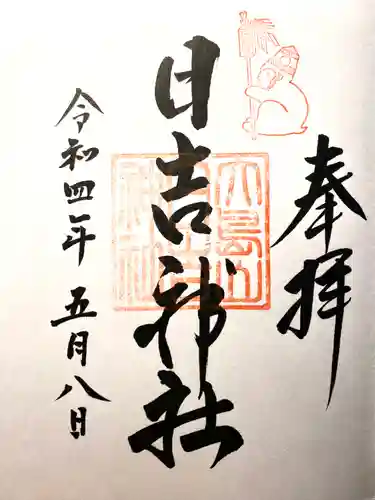 奉拝
日吉神社
令和四年五月八日